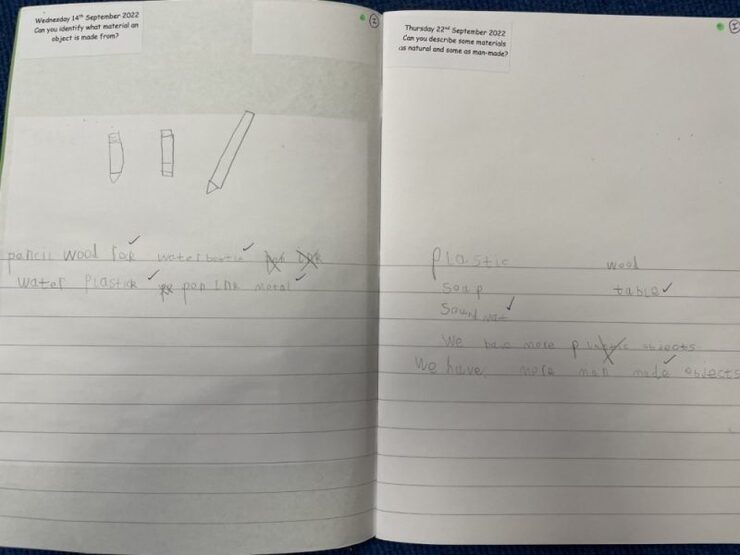 Wednesday 14th September 2022
Can you identify what material an
object is made from?
pancil wood water
water plastick pen ink metal
Thursday 22nd September 2022
Can you describe some materials
as natural and some as man-made?
Plastic wood
soap table
Sound
We have more objects
We have more man made objects